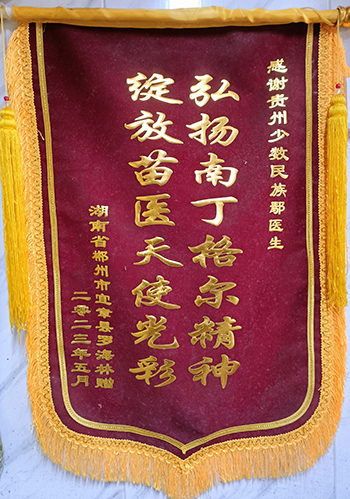 感谢贵州少数民族鄢医生
弘扬南丁格尔精神
绽放苗医天使光彩
湖南省郴州市宜章县罗海林赠
二零二三年五月